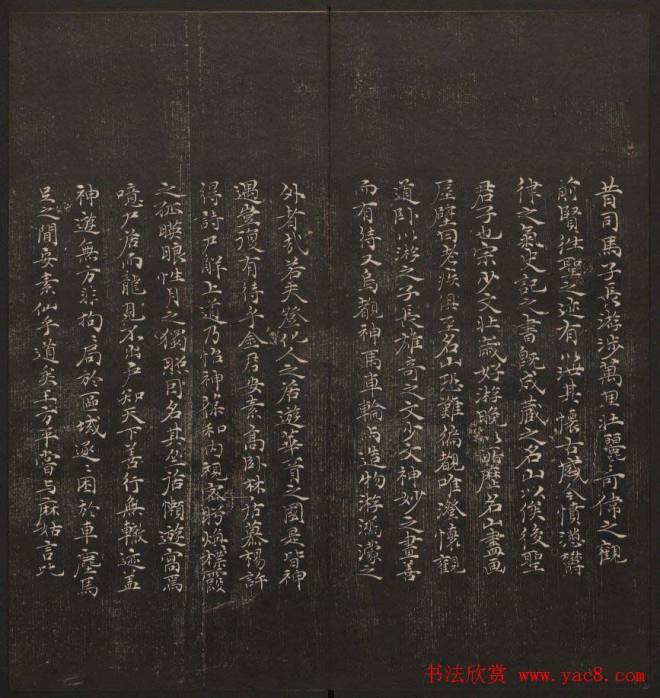 昔司馬子長游涉萬里壯麗奇偉之觀
前賢往聖之迹有以泄其懷古感今憤邁
律之氣史記之書既成藏之名山以俟後聖
君子也宗少文壯歲好游晚以所歷名山畫
屋壁司老疾俱至名山恐難徧觀唯澄懷觀
道臥以游之子長雄奇之文少文神妙之畫善
而有待又烏覩神馬車輪與造物游鴻濛之
外者哉若夫登化人之居遊華胥之國是皆神
遇奚復有待乎金君安素高臥林慕楊許
得詩尸解上道乃招神御知內視
之征瞑眼性月之獨昭因名其公居懶遊窩焉
噫尸居而龍見不出戶知天下善行無轍迹盖
神遊無方形拘局於區域逐逐困於車塵馬
足之間安素仙乎道矣王方平嘗與麻姑言此
书法欣赏 www.yac8.com